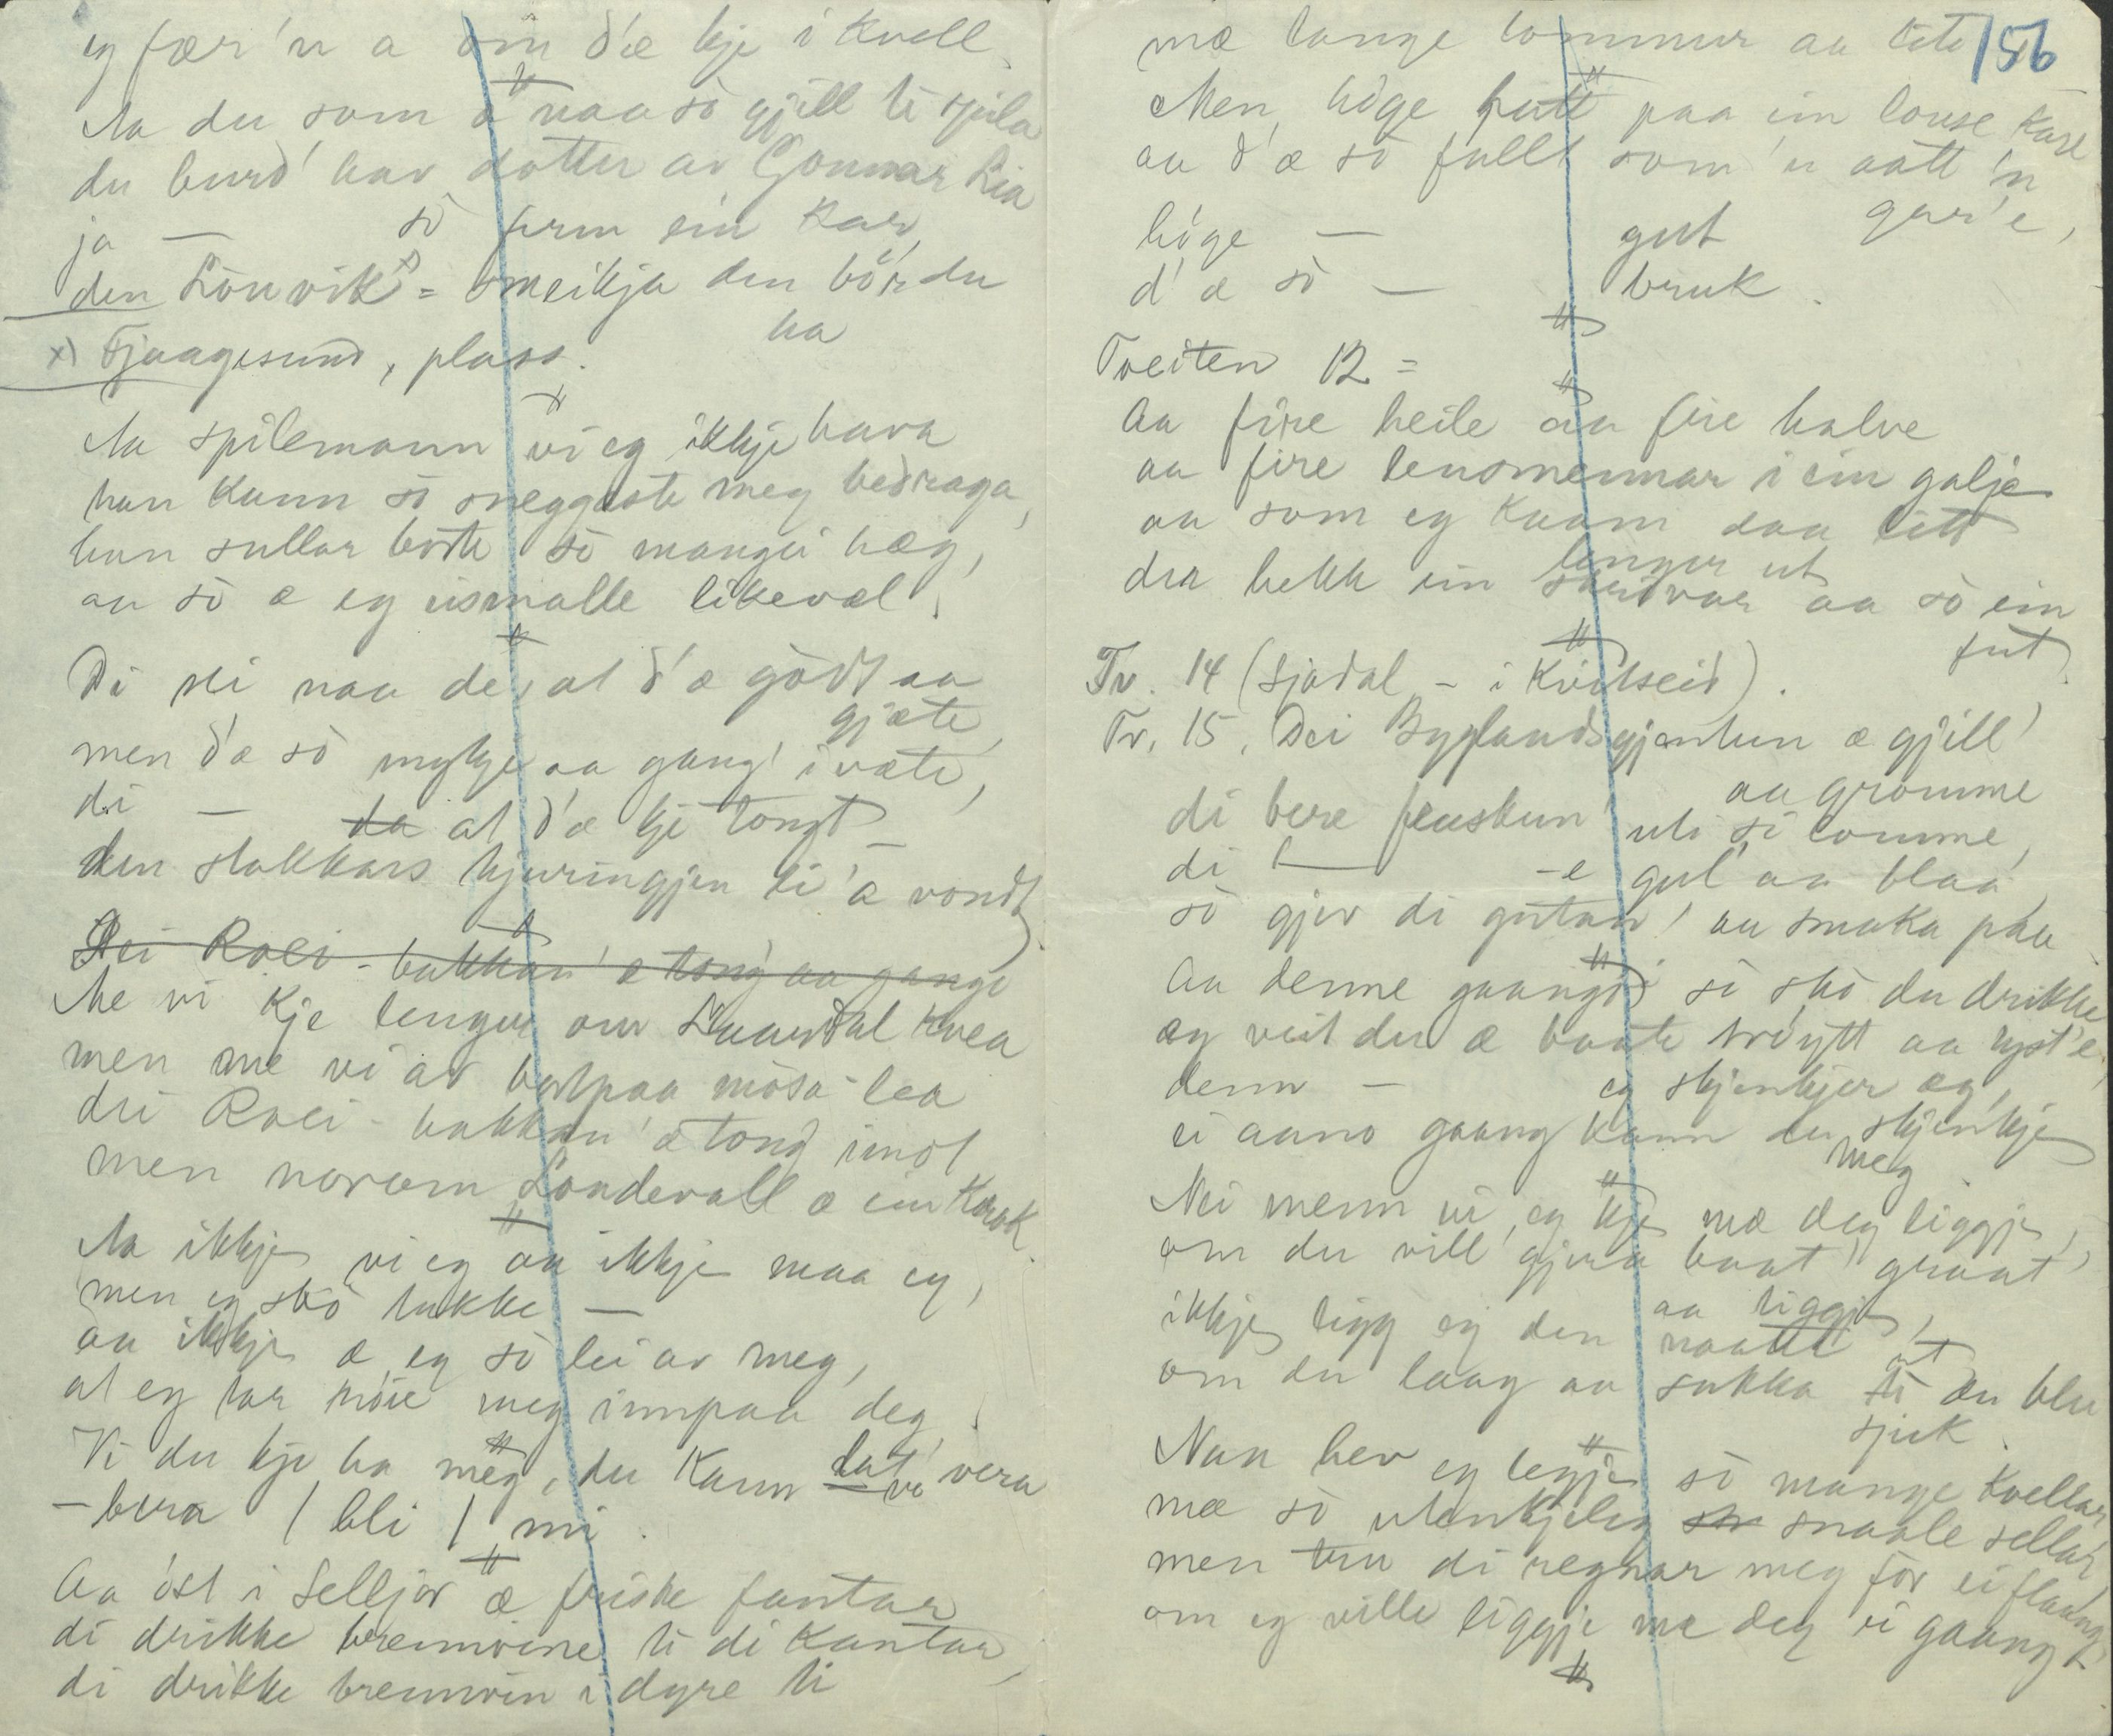 eg fær 'n a om d'æ kje i kvell
Aa du som æ naa sò gjill ti spila
du burd' hav dotter av Gonnar Lia
ja — sò firm ein kar,
den Lönvik x) = smeikja den bör du
ha
x) Fjaagesund, plass.
Aa spilemann vi eg ikkje hava
han kann sò sneggaste meg bedraga,
han sullar borte sò mangei hæg,
aa sò æ eg eismalle likevæl.
Di sei naa de, at d'æ godt aa
gjæte,
men d'æ sò mykje aa gang' i væte,
di — da at d'æ kje tongt
den stakkars hjuringjen li'a vondt
Dei Roei-bakkan' æ tong' aa gange
Me vi kje lenger om Laurdal kvea
men me vi av bortpaa mosa-lea
dei Roei-bakkan' æ tong imot
men noraum Londevall æ ein krok.
Aa ikkje vi eg aa ikkje maa eg,
men eg sko takke —
aa ikkje æ eg sò lei av meg,
at eg tar nöie meg innpaa deg.
Vi du kje ha meg, du kann lat vera
— bera / bli / mi.
Aa öst i Seljor æ friske fantar
di drikke brennvine ti di kantar,
di drikke brennvin i dyre ti
156
mæ lange lommur aa lite i
Men höge hatt paa ein louse kar
aa d'æ sò fullt som 'n aatt 'n
gar'e,
höge — gut
d'æ sò — bruk.
Tveiten 12 =
Aa fire heile aa fire halve
aa fire lensmennar i ein galje
aa som eg kaam daa litt
lenger ut
der hekk ein skrivar aa sò ein
fut.
Tv. 14 (Sjadal - i Kvitseid).
Tv. 15. Dei Byglandsgjentun æ gjill'
aa gromme
di bere fleuskun' uti si lomme,
di — -e gul' aa blaa
sò gjev di gutan' aa smaka paa
Aa denne gaangji sò sko du drikke
eg veit du æ baate tröytt aa tyst'e,
denn — eg skjenkjer eg,
ei aano gaang kann du skjenkje
meg
Nei menn vi eg kje mæ deg liggje,
om du vill' gjera baat' graat'
aa tiggje,
ikkje ligg eg den naatti
om du laag aa sukka at ti du blei
sjuk.
Nan hev eg legje sò mange kvellar
mæ sò utenkjeleg snaale sellar
men tru di regnar meg for ei flaangse
om eg ville liggje mæ deg ei gaang